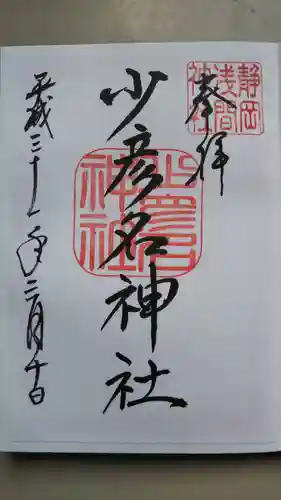 奉拝
静岡
浅間
神社
少彦名神社
少彦名
神社
平成三十一年二月十日